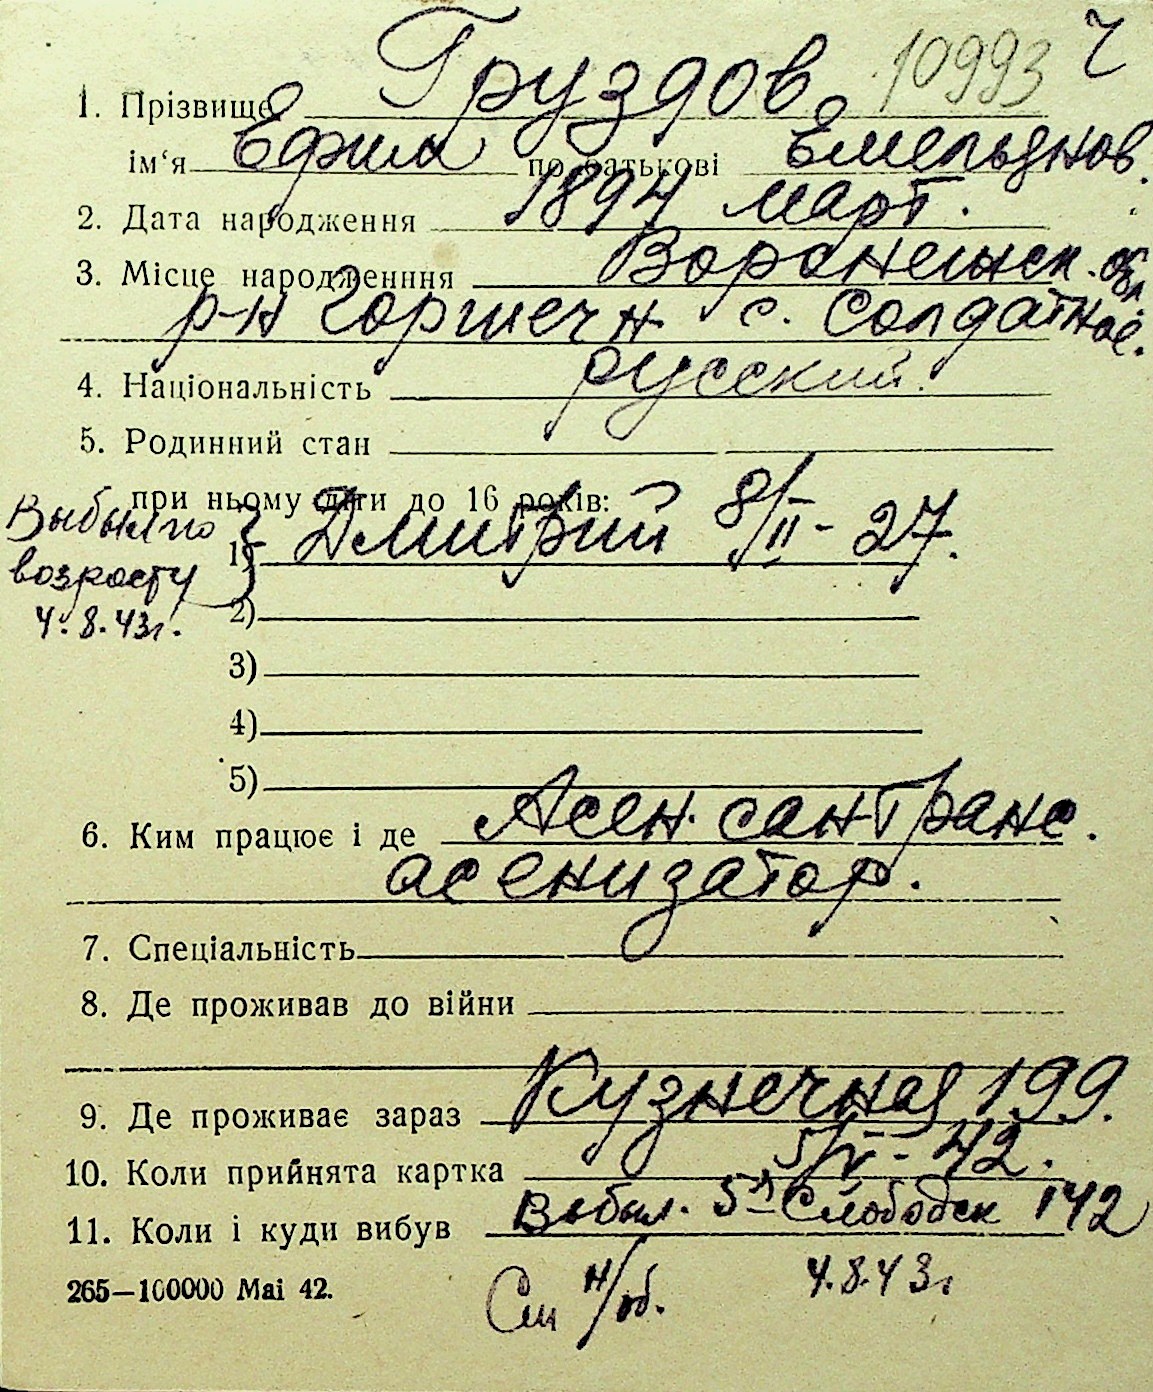 10993 Ч
1. Прізвище Груздов
ім‘я Ефим по батькові Емельянов.
2. Дата народження 1894 март.
3. Місце народженння Воронежск. обл.
р-н Горшечн с. Солдатное.
4. Національність русский.
5. Родинний стан
при ньому діти до 16 років:
Выбыл по
1) Дмитрий 8/II - 27.
возрасту
4.8.43г.
2)
3)
4)
5)
6. Ким працює і де Асен. сантранс.
асенизатор.
7. Спеціальність
8. Де проживав до війни
9. Де проживає зараз Кузнечная 199.
10. Коли прийнята картка 5/V - 42.
11. Коли і куди вибув Выбыл. 5-я Слободск 142
265—100000 Маі 42. См н/об. 4.8.43г